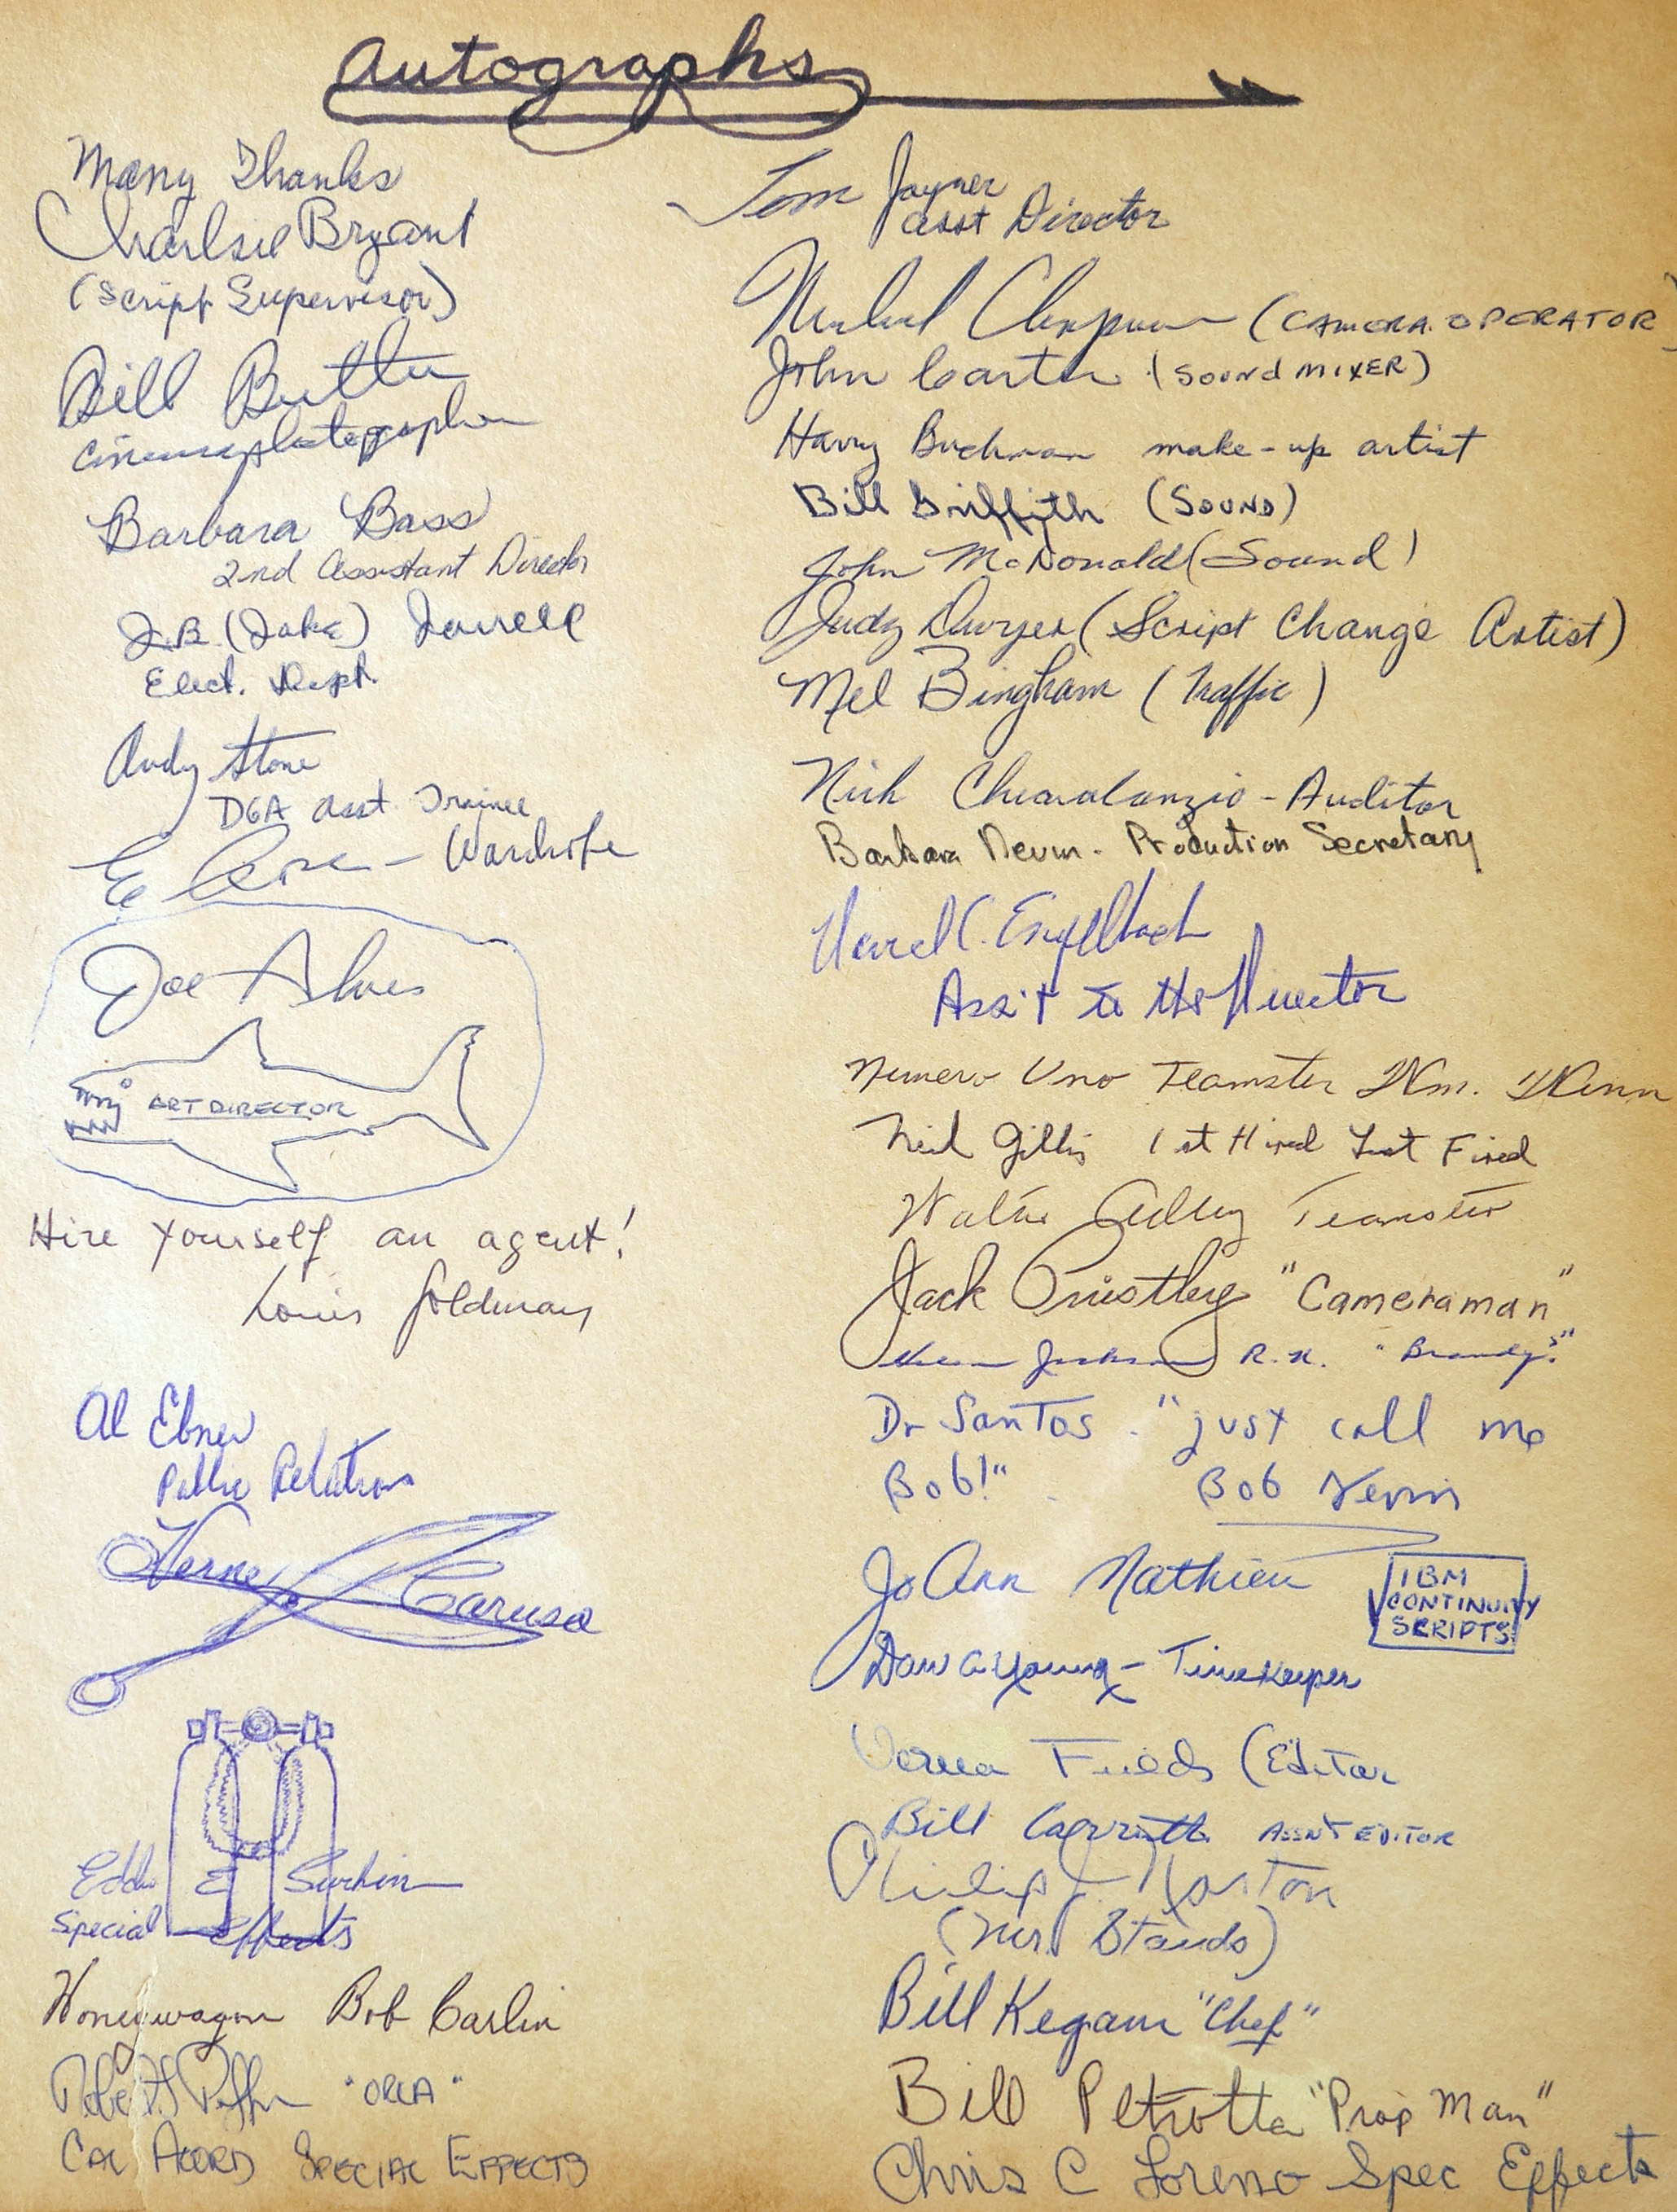 Autographs
Many Thanks
Charlsie Bryant
(Script Supervisor)
Bill Butler
Cinemaphotographer
Barbara Bass
2nd Assistant Director
J.B. (Jake) Jarrell
Elect. Dept.
Andy Stone
DGA asst. Trainee
- Wardrobe
Joe Alves
ART DIRECTOR
Hire yourself an agent!
Louis Goldman
Al Ebner
Public Relations
Verne Caruso
Eddie E Surkin
Special Effects
Honeywagon Bob Carlin
Robert "ORCA"
Cal Acord Special Effects
Tom Joyner
asst Director
Michael Chapman (CAMERA OPERATOR)
John Carter (SOUND MIXER)
Harry Buchman make-up artist
Bill Griffith (SOUND)
John McDonald (Sound)
Judy Dwyer (Script Change Artist)
Mel Bingham (Traffic)
Nick Chiaralanzio - Auditor
Barbara Nevin - Production Secretary
Engelbach
Ass't to the Director
Numero Uno Teamster Wm.
Neil Gillis 1st Hired Last Fired
Teamster
Jack Priestley "Cameraman"
Jackson R.N.
Dr Santos - "just call me
Bob!" Bob Nevin
JoAnn Mathieu
IBM
CONTINUITY
SCRIPTS
Young - Timekeeper
Verna Fields (Editor
Bill Carruth ASSN'T EDITOR
Philip
Bill Kegam "Chef"
Bill Petrotta "Prop Man"
Chris C Loreno Spec Effects